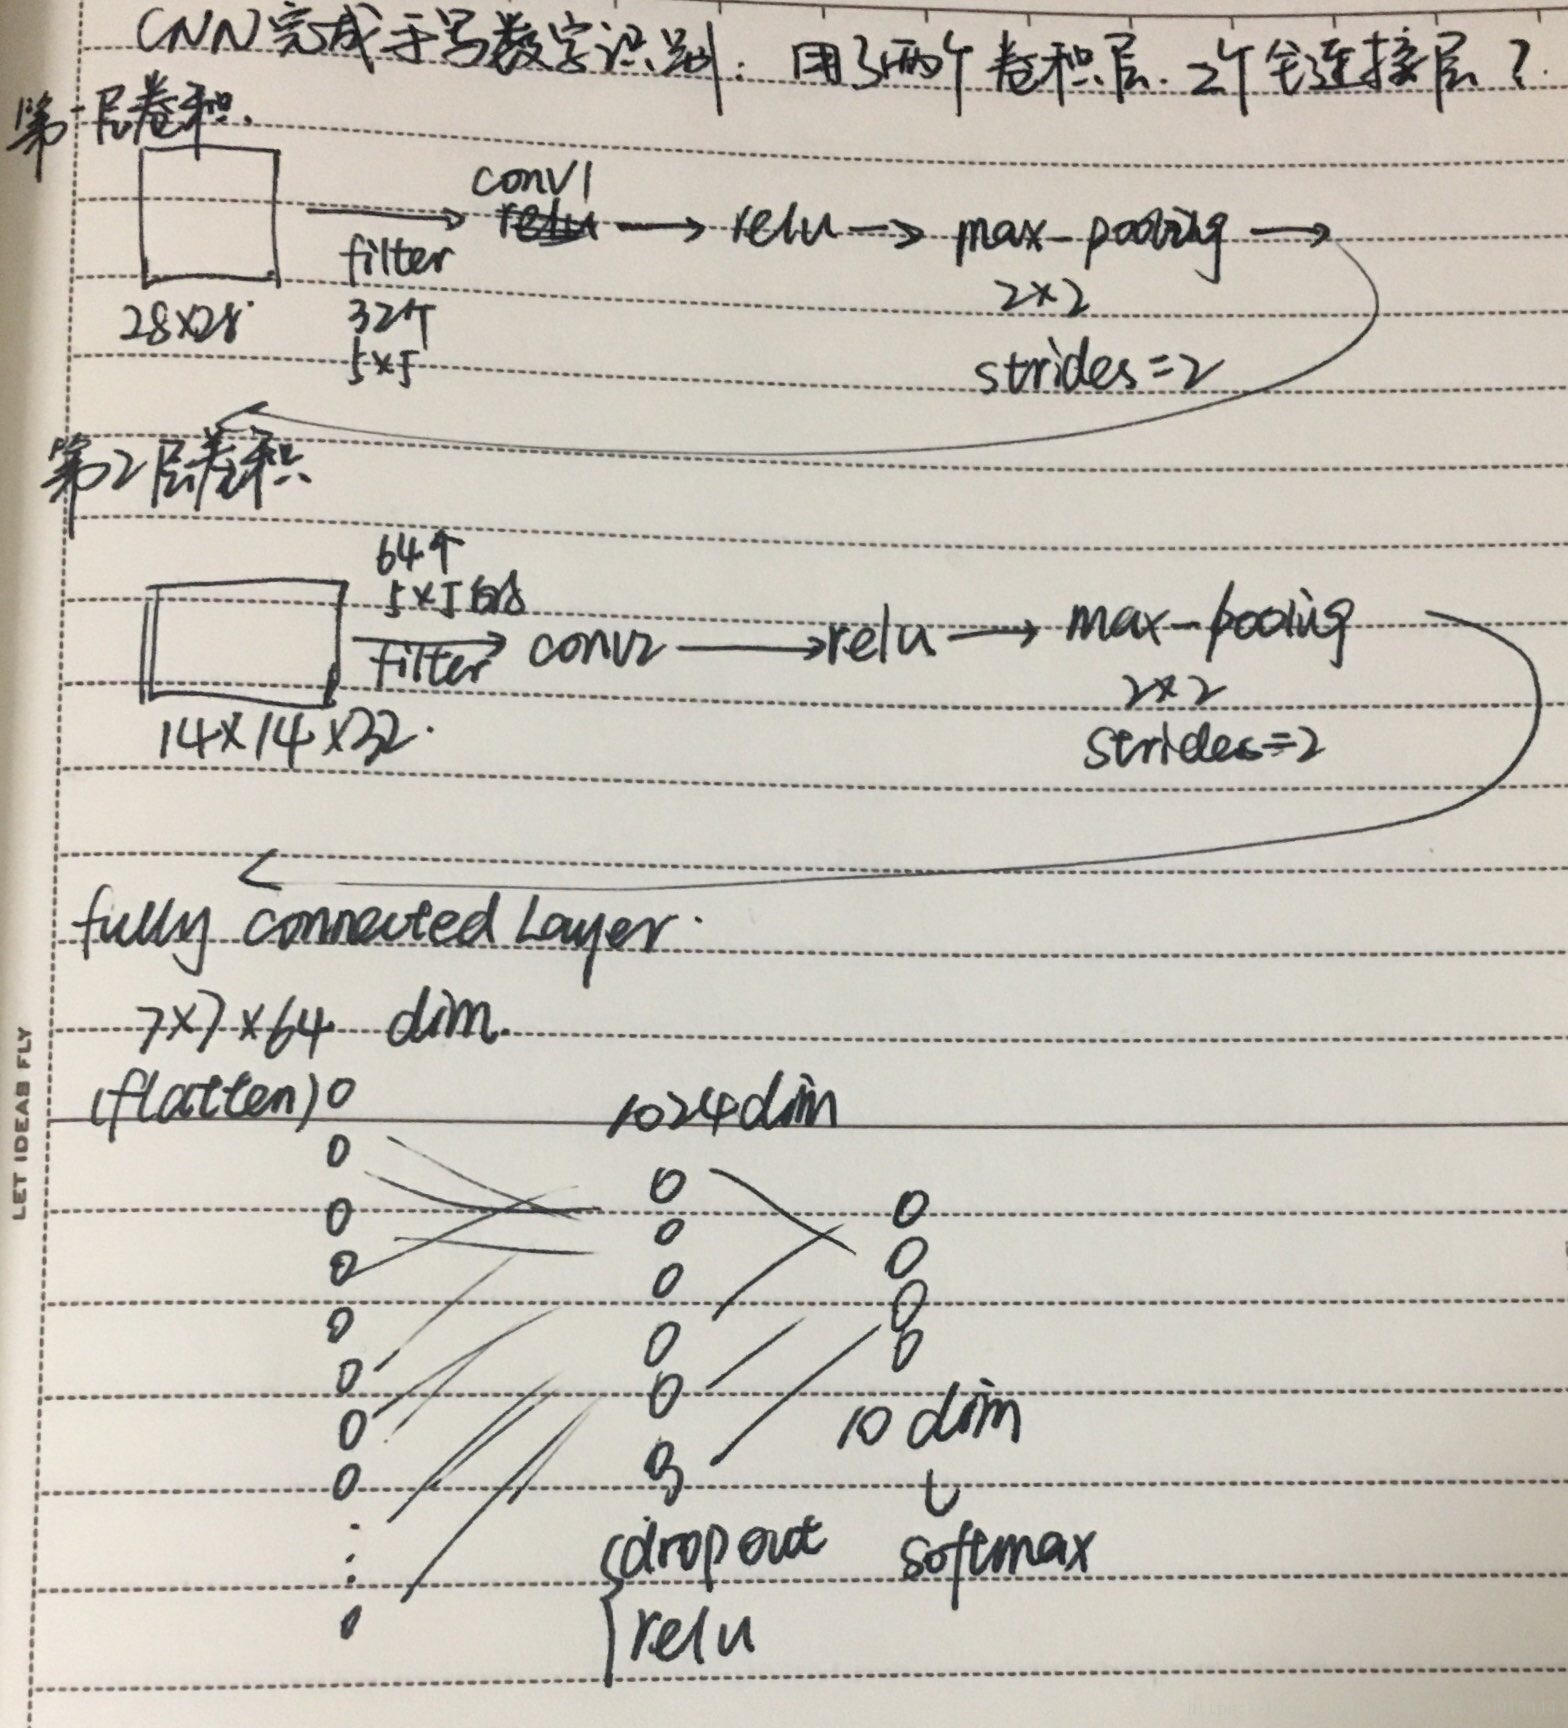 CNN完成手写数字识别. 用了两个卷积层. 2个全连接层?
第一层卷积.
conv1
relu → relu → max-pooling →
filter
32个
5×5
28×28
2×2
strides=2
第2层卷积
64个
5×5的
filter
conv2 → relu → max-pooling
14×14×32.
2×2
strides=2
fully connected Layer.
7×7×64 dim.
(flatten)
1024dim
10 dim
dropout
relu
softmax
LET IDEAS FLY